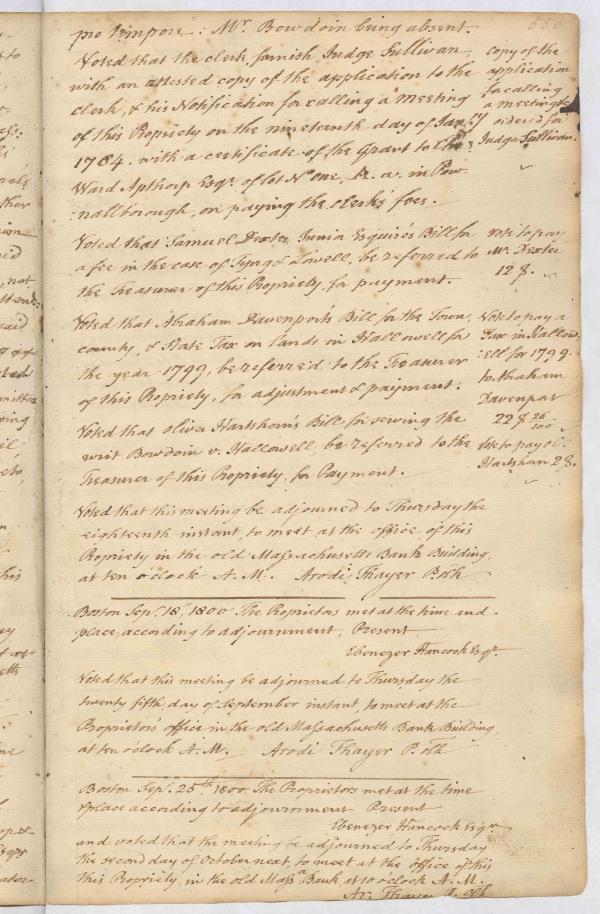 556
pro tempore: Mr. Bowdoin being absent.
Voted that the clerk furnish Judge Sullivan,
with an attested copy of the application to the
clerk, & his Notification for calling a Meeting
of this Propriety on the nineteenth day of Jany
1764. with a certificate of the Grant to
Ward Apthorp Esqr. of lot No. one, in Pow
:nallborough, on paying the clerks' fees.
copy of the
application
for calling
a meeting &c
ordered for
Judge Sullivan.
Voted that Samuel Dexter Junior Esquire's Bill for
a fee in the case of Tyng & Lowell, be referred to
the Treasurer of this Propriety, for payment.
vote to pay
Mr. Dexter
12 $.
Voted that Abraham Davenport's Bill for the Town,
county, & State Tax on lands in Hallowell for
the year 1799, be referred to the Treasurer
of this Propriety, for adjustment & payment.
Vote to pay a
Tax in Hallow:
:ell for 1799.
to Abraham
Davenport
22 $ 26/100
Voted that Oliver Hartshorn's Bill for serving the
writ Bowdoin v. Hallowell, be referred to the
Treasurer of this Propriety, for Payment.
Vote to pay Ol:
Hartshorn 2 $.
Voted that this meeting be adjourned to Thursday the
eighteenth instant, to meet at the office of this
Propriety in the old Massachusetts Bank Building,
at ten o'clock A. M. Arodi Thayer P. Clk
Boston Sepr. 18, 1800 The Proprietors met at the time and
place, according to adjournment, Present
Ebenezer Hancock Esqr.
Voted that this meeting be adjourned to Thursday the
twenty fifth day of September instant, to meet at the
Proprietors' office in the old Massachusetts Bank Building,
at ten o'clock A. M. Arodi Thayer P. Clk
Boston Sepr. 25th 1800 The Proprietors met at the time
& place according to adjournment Present
Ebenezer Hancock Esqr
and voted that the meeting be adjourned to Thursday
the second day of October next, to meet at the office of this
this Propriety, in the old Massa. Bank, at 10 o'clock A. M.
Ar. Thayer P. Clk